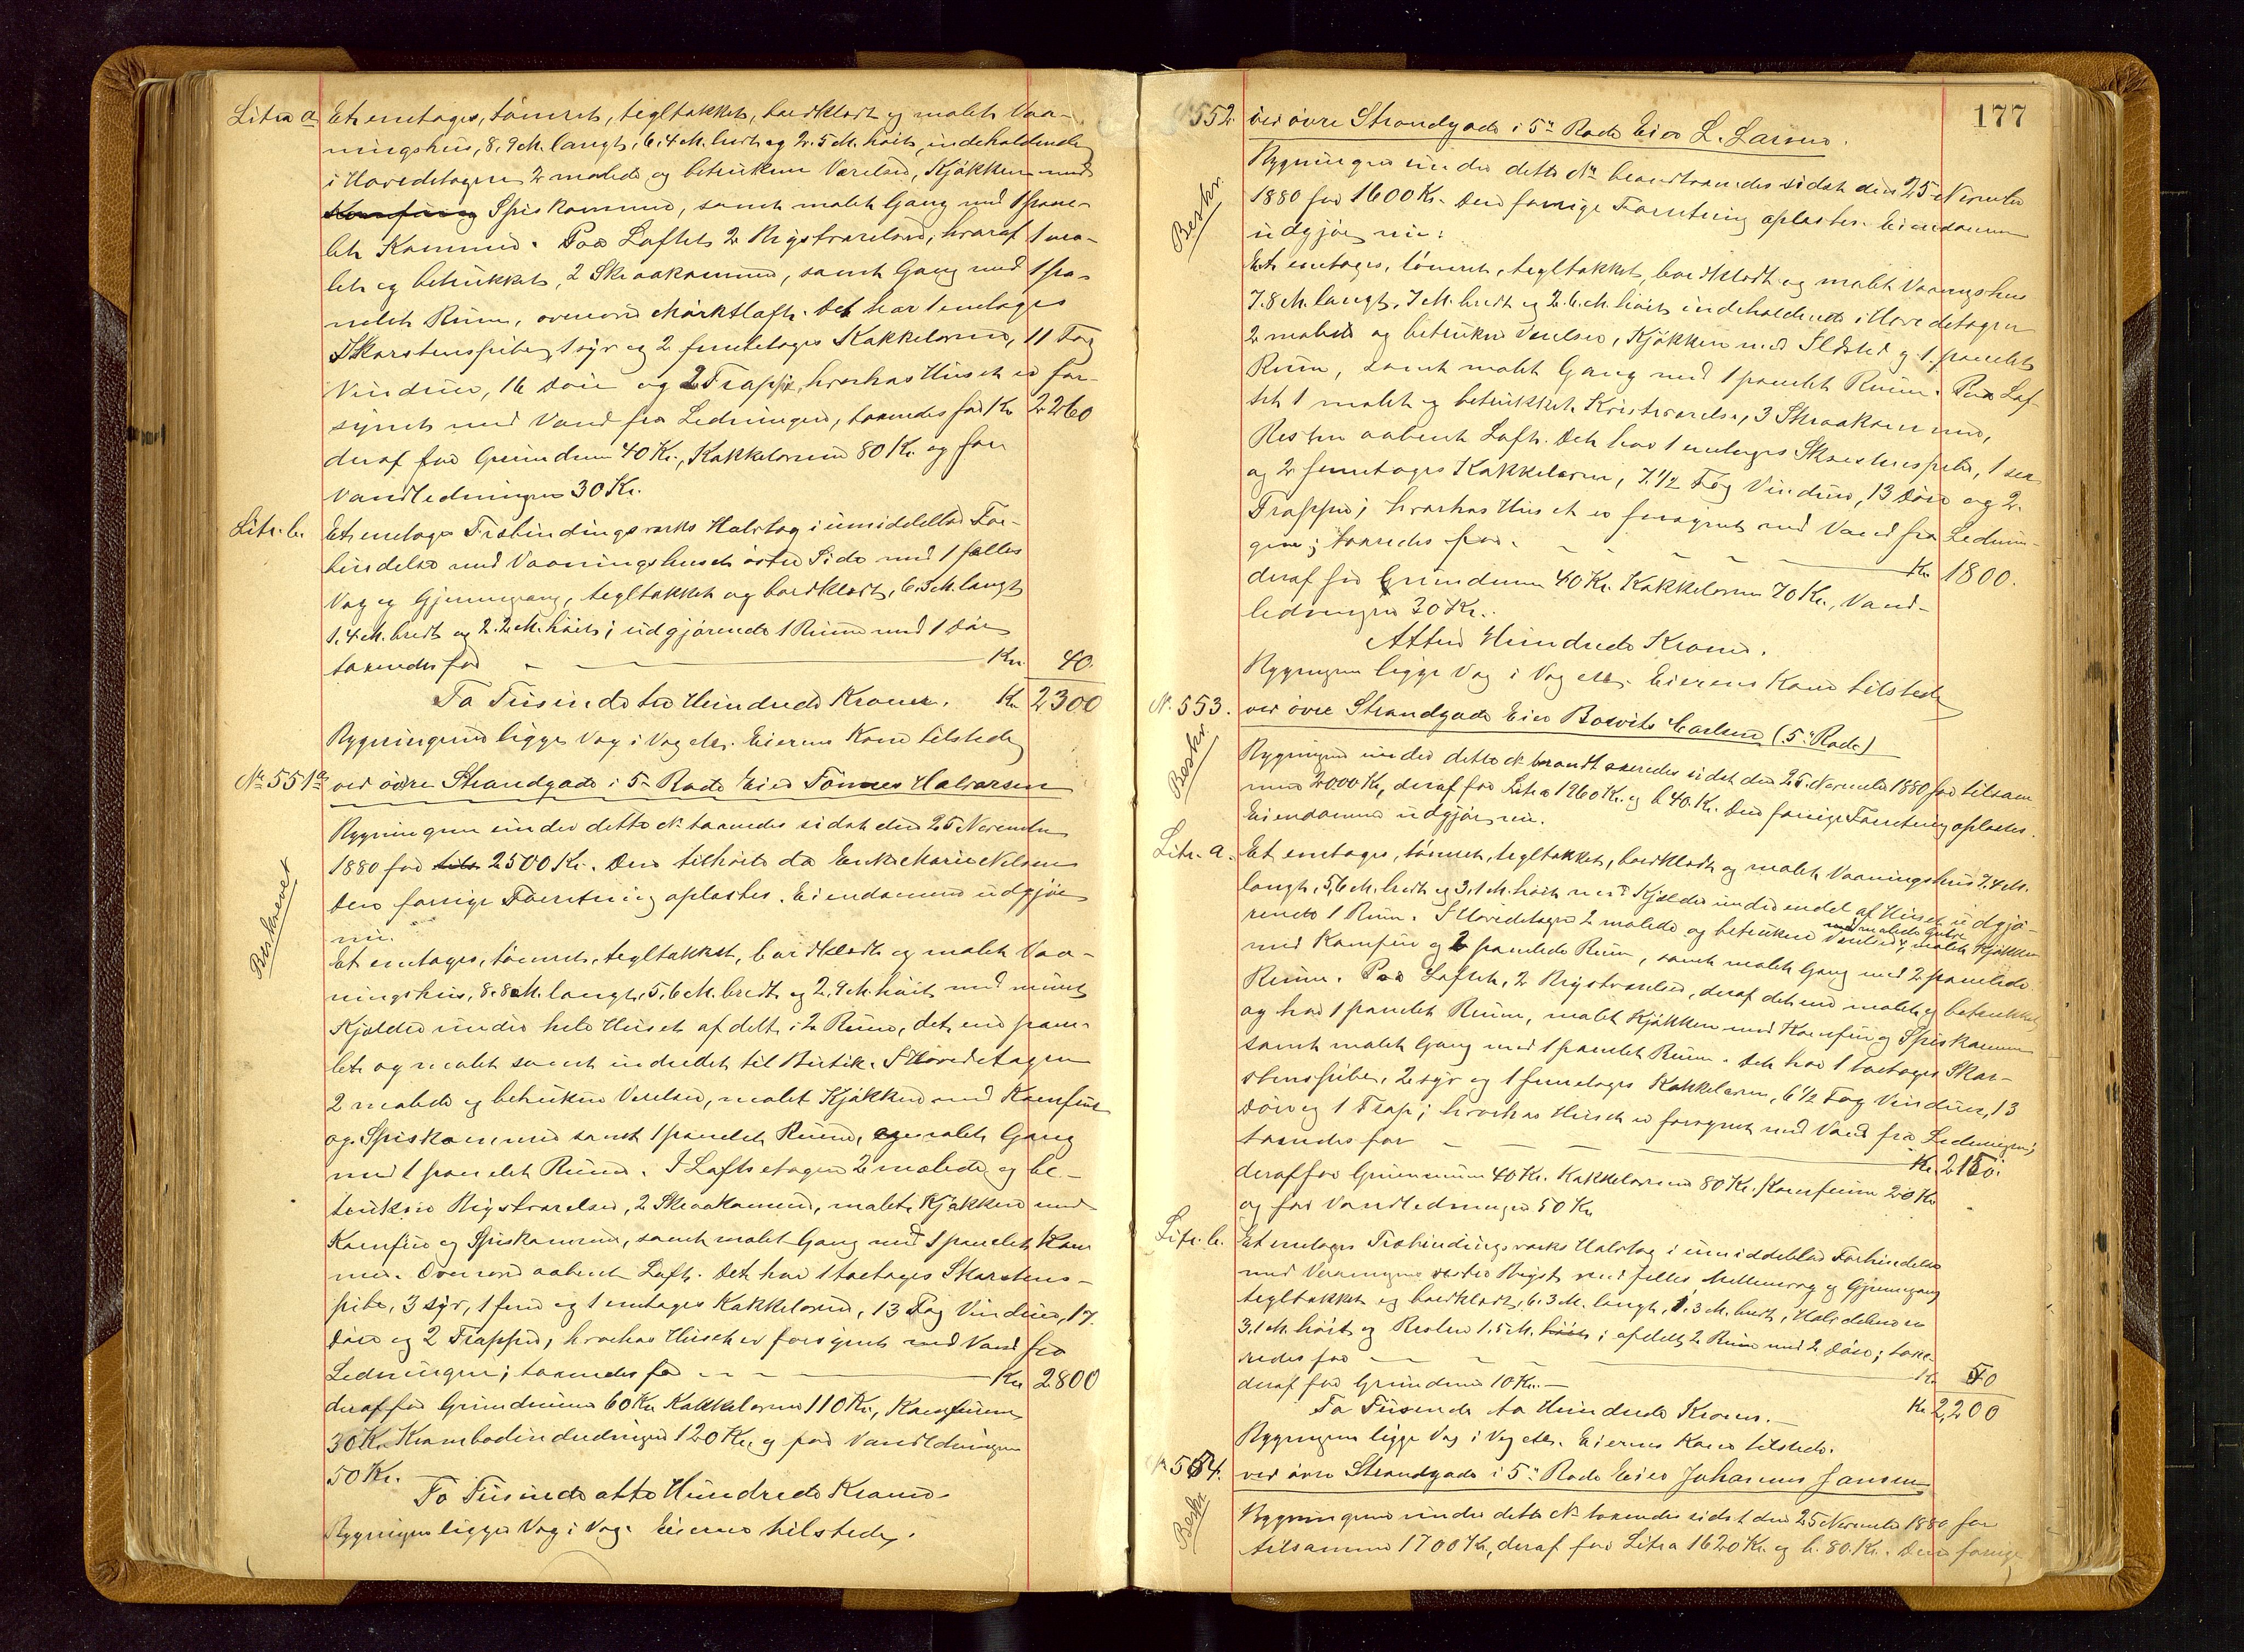 Litra a Et enetages, tømret, tegltækket, bordklædt og malet Vaa-
ningshus, 8,9 M. langt, 6,4 M. bredt og 2.5 M. høit, indeholdende
i Hovedetagen 2 malede og betrukne Værelser, Kjøkken med
Komfur og Spiskammer, samt malet Gang med 1 pane-
let Kammer. Paa Loftet 2 Kvistværelser, hvoraf 1 ma-
let og betrukket, 2 Skraakammer, samt Gang med 1 pa-
nelet Rum, ovenover Mørktloft. Det har 1 enetages
Skorstenspibe, 1 syv og 2 femetages Kakkelovne, 11 Fag
Vinduer, 16 Døre og 2 Trapper, hvorhos Huset er for-
synet med Vand fra Ledningen, taxeredes for Kr. 2260
deraf for Grunden 40 Kr., Kakkelovnene 80 Kr. og for
Vandledningen 30 Kr.
Litr. b. Et enetages Træbindingsværks Halvtag i umiddelbar For-
bindelse med Vaaningshusets østre Side med 1 fælles
Væg og Gjennemgang, tegltækket og bordklædt, 6.3 M. langt
1,4 M. bredt og 2.2 M. høit; udgjørende 1 Rum med 1 Dør
taxeredes for Kr. 40.
To Tusinde tre Hundrede Kroner. Kr. 2300
Bygningerne ligger Væg i Væg etc. Eierens Kone tilstede
No 551a ved øvre Strandgade i 5te Rode Eier Tønnes Halvorsen
Beskrevet
Bygningen under dette No taxeredes sidst den 25 November
1880 for tils 2500 Kr. Den tilhørte da Enke Marie Nilsen
Den forrige Forretning oplæstes. Eiendommen udgjør
nu.
Et enetages, tømret, tegltækket, bordklædt og malet Vaa-
ningshus, 8.8 M. langt, 5,6 M. bredt og 2,9 M. høit med muret
Kjælder under hele Huset afdelt i 2 Rum, det ene pane-
let og malet samt indredet til Butik. I Hovedetagen
2 malede og betrukne Værelser, malet Kjøkken med Komfur
og Spiskammer samt 1 panelet Rum, og malet Gang
med 1 panelet Rum. I Loftsetagen 2 malede og be-
trukne Kvistværelser, 2 Skraakammer, malet Kjøkken med
Komfur og Spiskammer, samt malet Gang med 1 panelet Kam
mer. Ovenover aabent Loft. Det har 1 toetages Skorstens-
pibe, 3 syv, 1 fem og 1 enetages Kakkelovne, 13 Fag Vinduer, 17.
Døre og 2 Trapper, hvorhos Huset er forsynet med Vand fra
Ledningen; taxeredes for Kr. 2800
deraf for Grunden 60 Kr. Kakkelovnene 110 Kr., Komfurene
30 Kr. Krambodindredningen 120 Kr. og for Vandledningen
50 Kr.
To Tusinde otte Hundrede Kroner.
Bygningen ligger Væg i Væg. Eieren tilstede.
177
552. ved øvre Strandgade i 5te Rode Eier L. Larsen.
Beskr.
Bygningen under dette No brandtaxeredes sidst den 25 November
1880 for 1600 Kr. Den forrige Forretning oplæstes. Eiendommen
udgjør nu:
Et enetages, tømret, tegltækket, bordklædt og malet Vaaningshus
7.8 M. langt, 7 M. bredt og 2.6 M. høit indeholdende i Hovedetagen
2 malede og betrukne Værelser, Kjøkken med Ildsted og 1 panelet
Rum, samt malet Gang med 1 panelet Rum. Paa Lof-
tet 1 malet og betrukket Kvistværelse, 3 Skraakammer,
Resten aabent Loft. Det har 1 enetages Skorstenspibe, 1 sex
og 2 femetages Kakkelovne, 7 1/2 Fag Vinduer, 13 Døre og 2
Trapper; hvorhos Huset er forsynet med Vand fra Lednin-
gen; taxeredes for Kr. 1800.
deraf for Grunden 40 Kr. Kakkelovnene 70 Kr., Vand-
ledningen 30 Kr.
Atten Hundrede Kroner.
Bygningen ligger Væg i Væg etc. Eierens Kone tilstede
N. 553. ved øvre Strandgade Eier Bowits Carlsen (5te Rode)
Beskr.
Bygningerne under dette No brandtaxeredes sidst den 25 November 1880 for tilsam-
men 2000 Kr., deraf for Litr a 1960 Kr. og b 40 Kr. Den forrige Forretning oplæstes.
Eiendommen udgjør nu.
Litr. a. Et enetages, tømret, tegltækket, bordklædt og malet Vaaningshus 7,4 M.
langt, 5,6 M. bredt og 3,1 M. høit med Kjælder under endel af Huset udgjø-
rende 1 Rum. I Hovedetagen 2 malede og betrukne Værelser med malede Gulve, malet Kjøkken
med Komfur og 2 panelede Rum, samt malet Gang med 2 panelede
Rum. Paa Loftet, 2 Kvistværelser, deraf det ene malet og betrukket
og har 1 panelet Rum, malet Kjøkken med Komfur og Spiskammer
samt malet Gang med 1 panelet Rum. Det har 1 toetages Skor-
stenspibe, 2 syv og 1 femetages Kakkelovne, 6 1/2 Fag Vinduer, 13
Døre og 1 Trap; hvorhos Huset er forsynet med Vand fra Ledningen;
taxeredes for Kr. 2150.
deraf for Grunden 40 Kr. Kakkelovnene 80 Kr. Komfurene 20 Kr
og for Vandledningen 50 Kr
Litr. b. Et enetages Træbindingsværks Halvtag i umiddelbar Forbindelse
med Vaaningens vestre Kvist med fælles Mellemvæg og Gjennemgang
tegltækket og bordklædt, 6.3 M. langt, 1.3 M. bredt, Halvdelen er
3,1 M. høit og Resten 1.5 M. høit; afdelt i 2 Rum med 2 Døre; taxe-
redes for Kr. 50
deraf for Grunden 10 Kr.
To Tusinde to Hundrede Kroner. Kr. 2,200
Bygningerne ligger Væg i Væg etc. Eierens Kone tilstede.
No 554. ved øvre Strandgade i 5te Rode Eier Johannes Jansen
Beskr
Bygningerne under dette No taxeredes sidst den 25 November 1880 for
tilsammen 1700 Kr., deraf for Litr a 1620 Kr. og b. 80 Kr. Den forrige